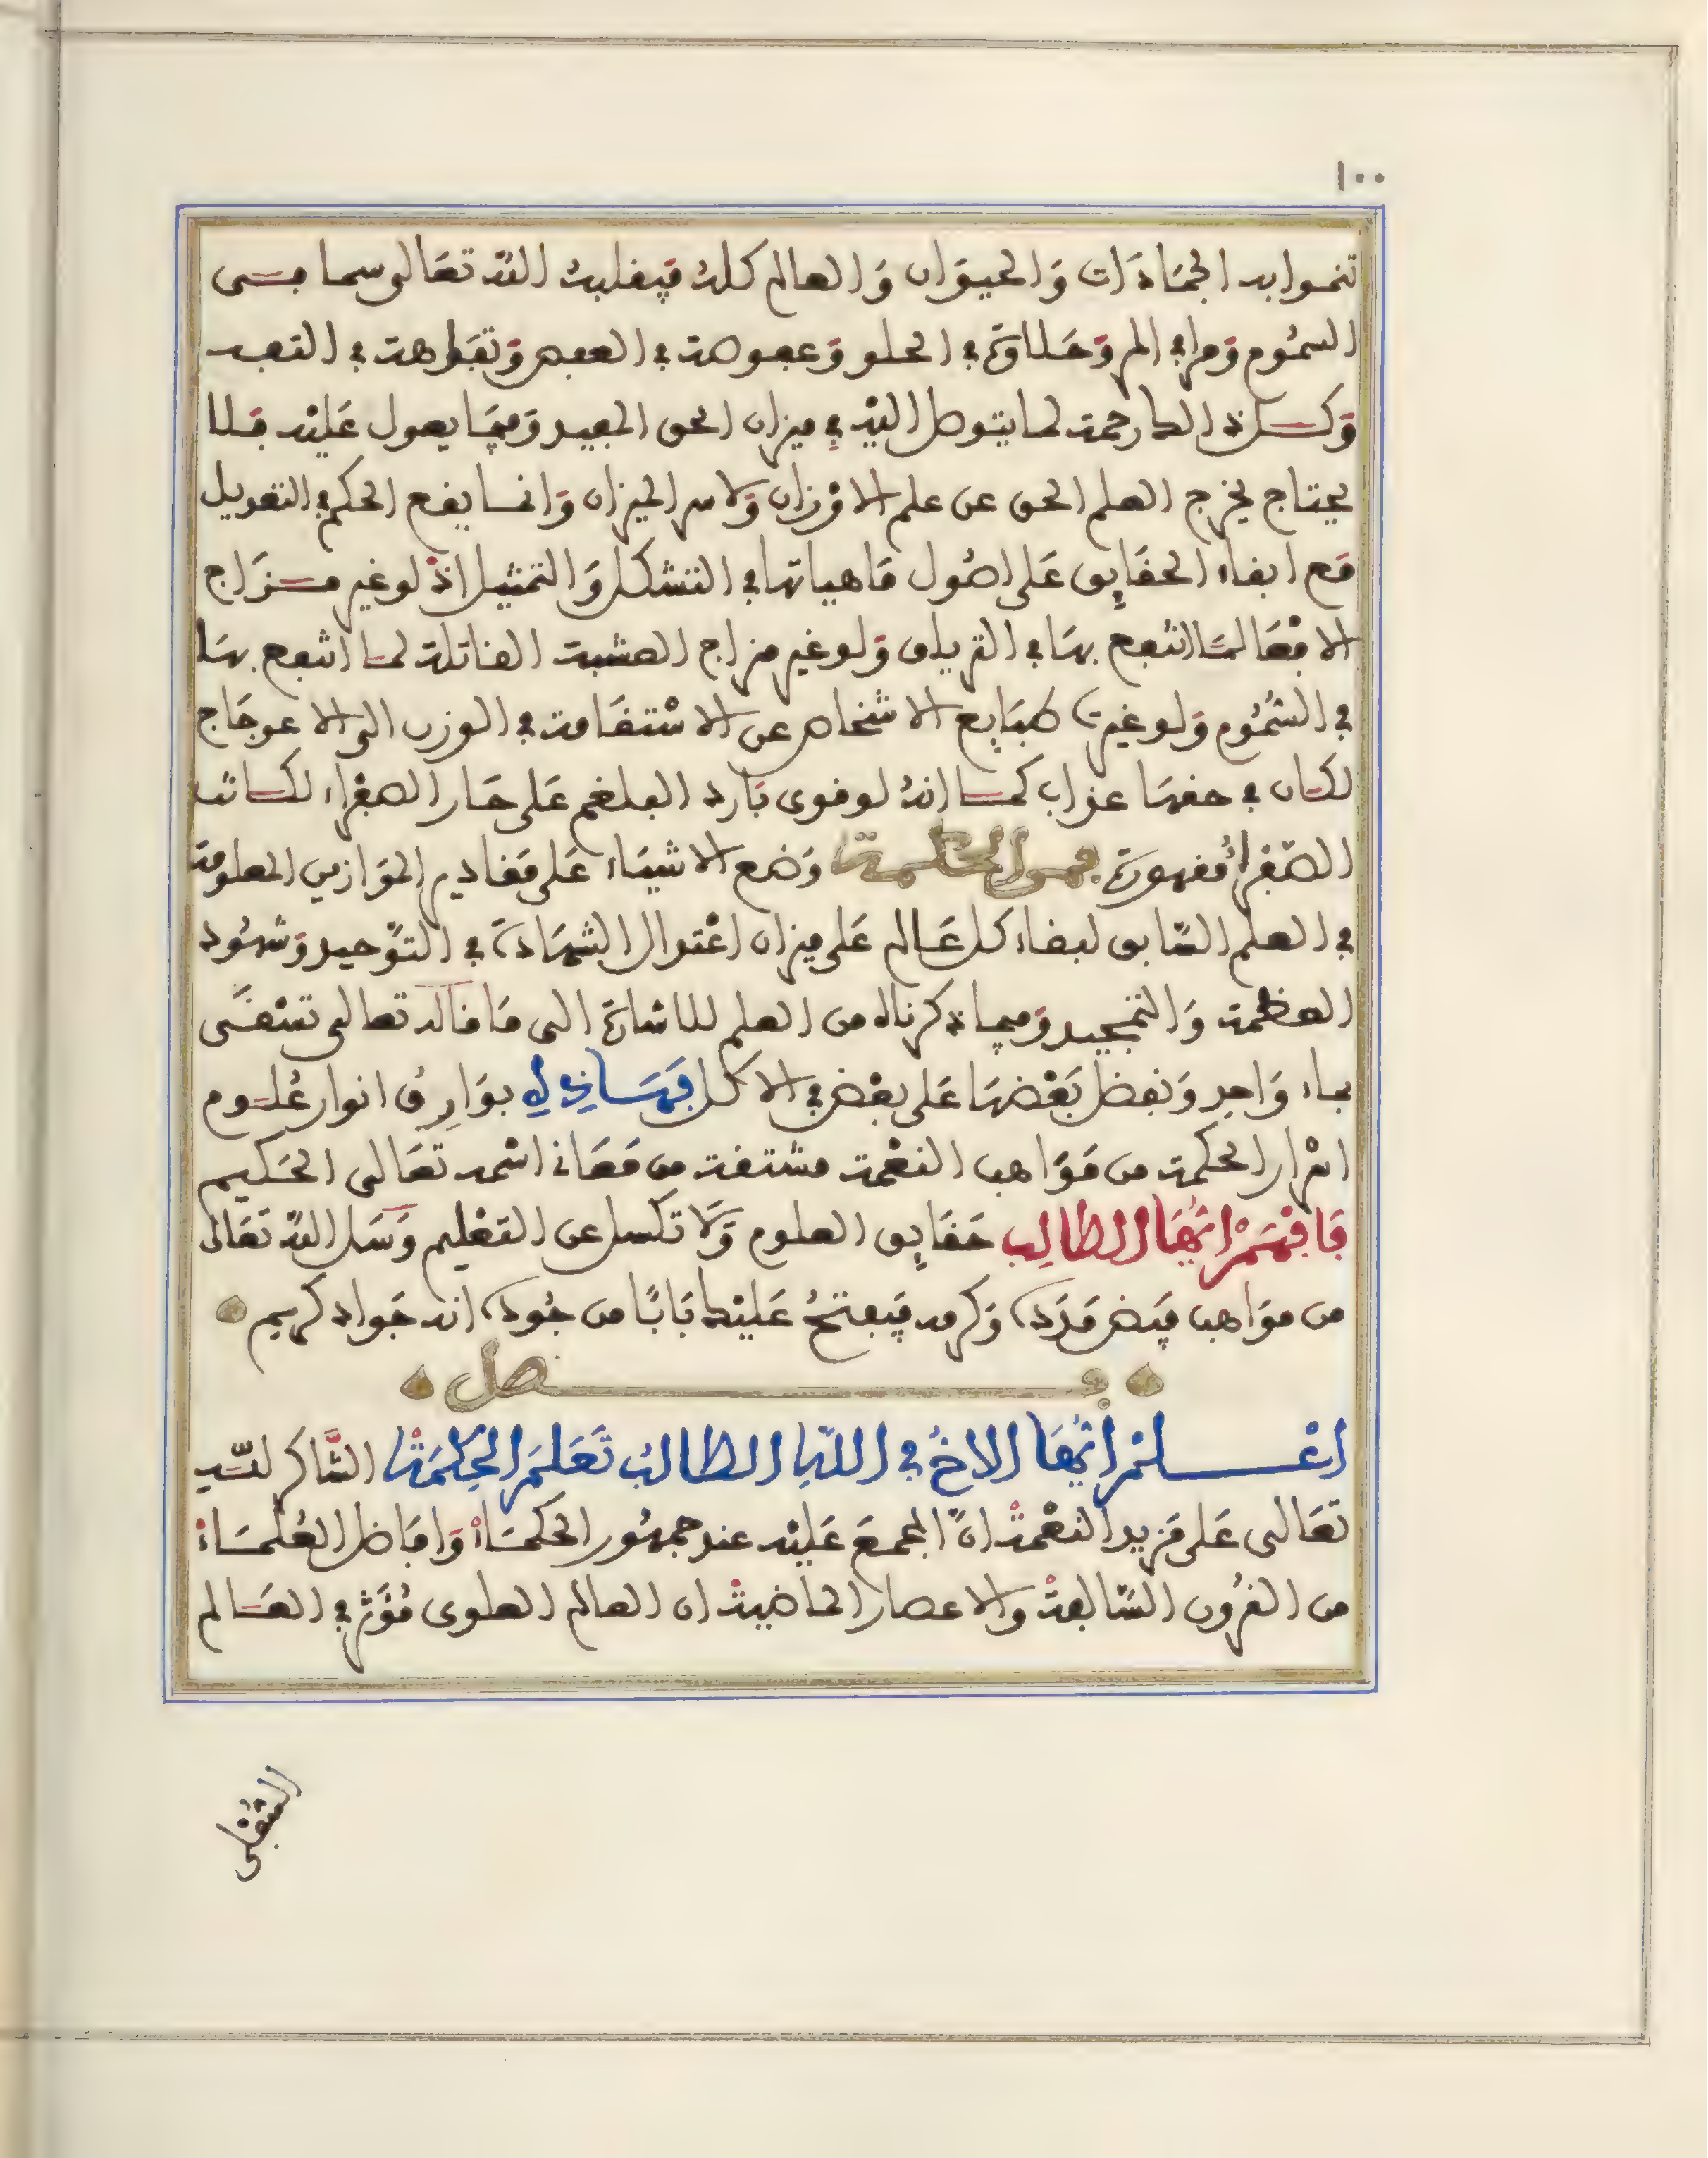 ١٠٠
تنموا به الجمادات والحيوان والعالم كله فيقلبه الله تعالى سما في
السموم ومرا في المر وحلاوة في الحلو وعفوصة في العفص وتفاهة في التفه
وكل ذلك رحمة لما يتوصل اليه في ميزان الحق المجيد وفيما يعول عليه فلا
يحتاج يخرج العلم الحق عن علم الاوزان ولا سر الميزان وانما يقع الحكم في التعويل
مع ابقاء الحقايق على اصول ماهياتها في التشكل والتمثيل اذ لو غير مزاج
الافعا لما انتفع بها في الترياق ولو غير مزاج العشبة القاتلة لما انتفع بها
في السموم ولو غيرت طبايع الاشخاص عن الاستقامة في الوزن الى الاعوجاج
لكان في حقها عذاب كما انه لو قوى بارد البلغم على حار الصفراء لكانت
الصفرا مقهورة فمن الحكمة وضع الاشياء على مقادير الموازين المعلومة
في العلم السابق لبقاء كل عالم على ميزان اعتدال الشهادة في التوحيد وشهود
العظمة والتمجيد وفيما ذكرناه من العلم للاشارة الى ما قاله تعالى تسقى
بماء واحد ونفضل بعضها على بعض في الاكل فهذا لي بوارق انوار علوم
اسرار الحكمة من مواهب النعمة مشتقة من معانى اسمه تعالى الحكيم
فافهم ايها الطالب حقايق العلوم ولا تكسل عن التعليم وسل الله تعالى
من مواهب فيض مدده وكرمه فيفتح عليك بابا من جوده انه جواد كريم
فصل
اعلم ايها الاخ في الله الطالب تعلم الحكمة الشاكر لله
تعالى على مزيد النعمة ان المجمع عليه عند جمهور الحكماء وافاضل العلماء
من القرون السالفة والاعصار الماضية ان العالم العلوى مؤثر في العالم
السفلى